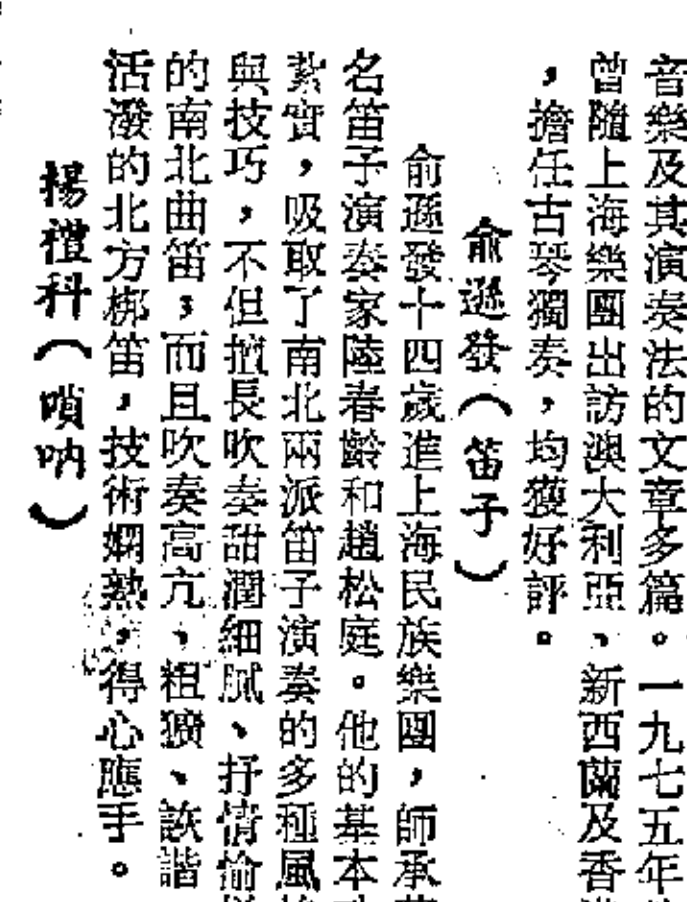 音樂及其演奏法的文章多篇。一九七五年
曾隨上海樂團出訪澳大利亞、新西蘭及香
，擔任古琴獨奏，均獲好評。
俞遜發（笛子）
俞遜發十四歲進上海民族樂團，師承
名笛子演奏家陸春齡和趙松庭。他的基本
紮實，吸取了南北兩派笛子演奏的多種風
與技巧，不但擅長吹奏甜潤細膩、抒情愉
的南北曲笛，而且吹奏高亢、粗獷、詼諧
活潑的北方梆笛，技術嫻熟，得心應手。
楊禮科（嗩吶）